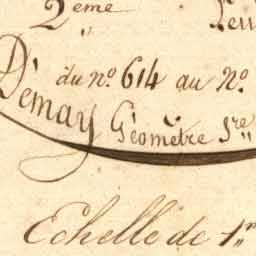 2ème Feui
du nº 614 au nº
Démay Géomètre 1re
Echelle de 1